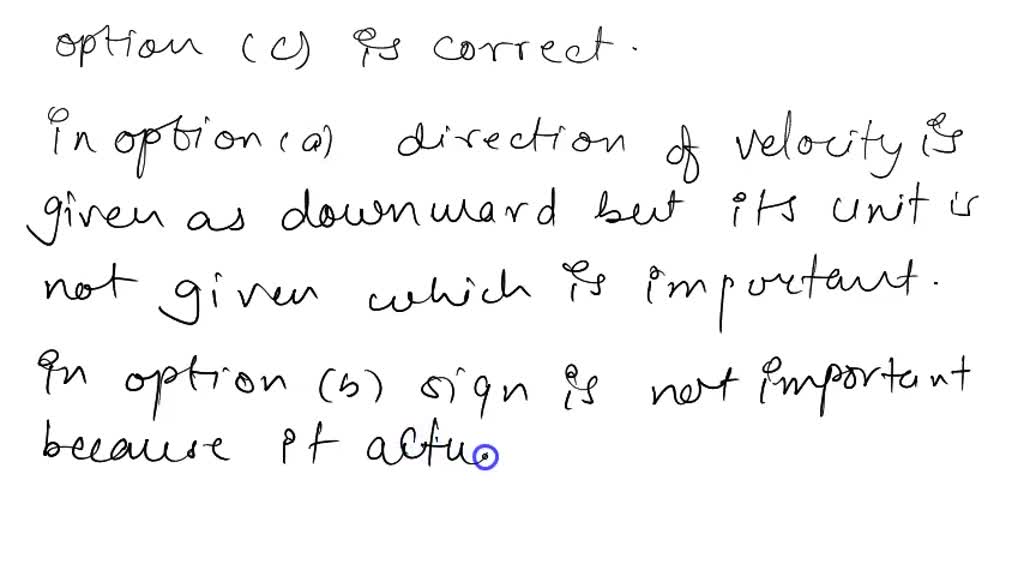 option (c) is correct.
In option (a) direction of velocity is
given as downward but its unit is
not given which is important.
In option (b) sign is not important
because it actu